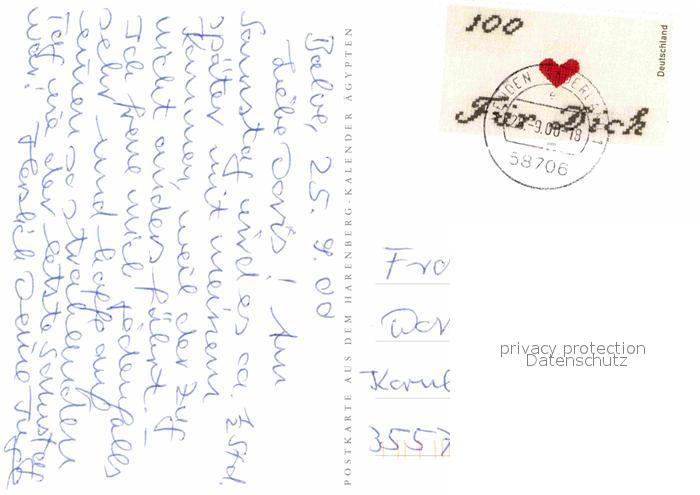 Balve, 25. 9. 00
Liebe Doris! Am
Samstag wird es ca. ½ Std.
später mit meinem
Kommen, weil der Zug
nicht anders fährt. 
Ich freue mich jedenfalls
sehr und hoffe auf
einen so tollen
Tag wie der letzte Samstag
war! Herzlich Deine
POSTKARTE AUS DEM HARENBERG-KALENDER ÄGYPTEN
100
Deutschland
Für Dich
58706
Fra
Dor
3557
privacy protection
Datenschutz